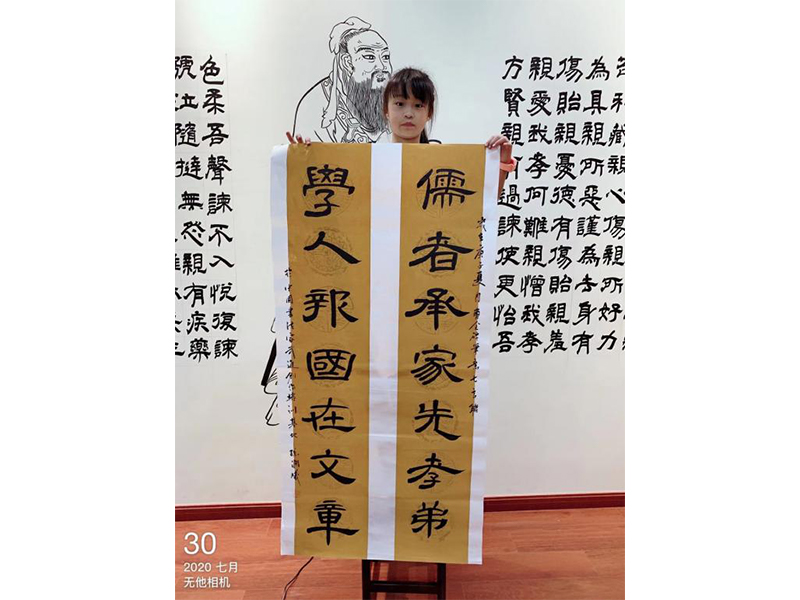 苟私藏親心傷親所好力
為具親所惡謹為去身有
傷貽親憂德有傷貽親羞
親愛我孝何難親憎我孝
方賢親有過諫使更怡吾
儒者承家先孝弟
學人報國在文章
色柔吾聲諫不入悅復諫
號泣隨撻無怨親有疾藥
30
2020 七月
无他相机